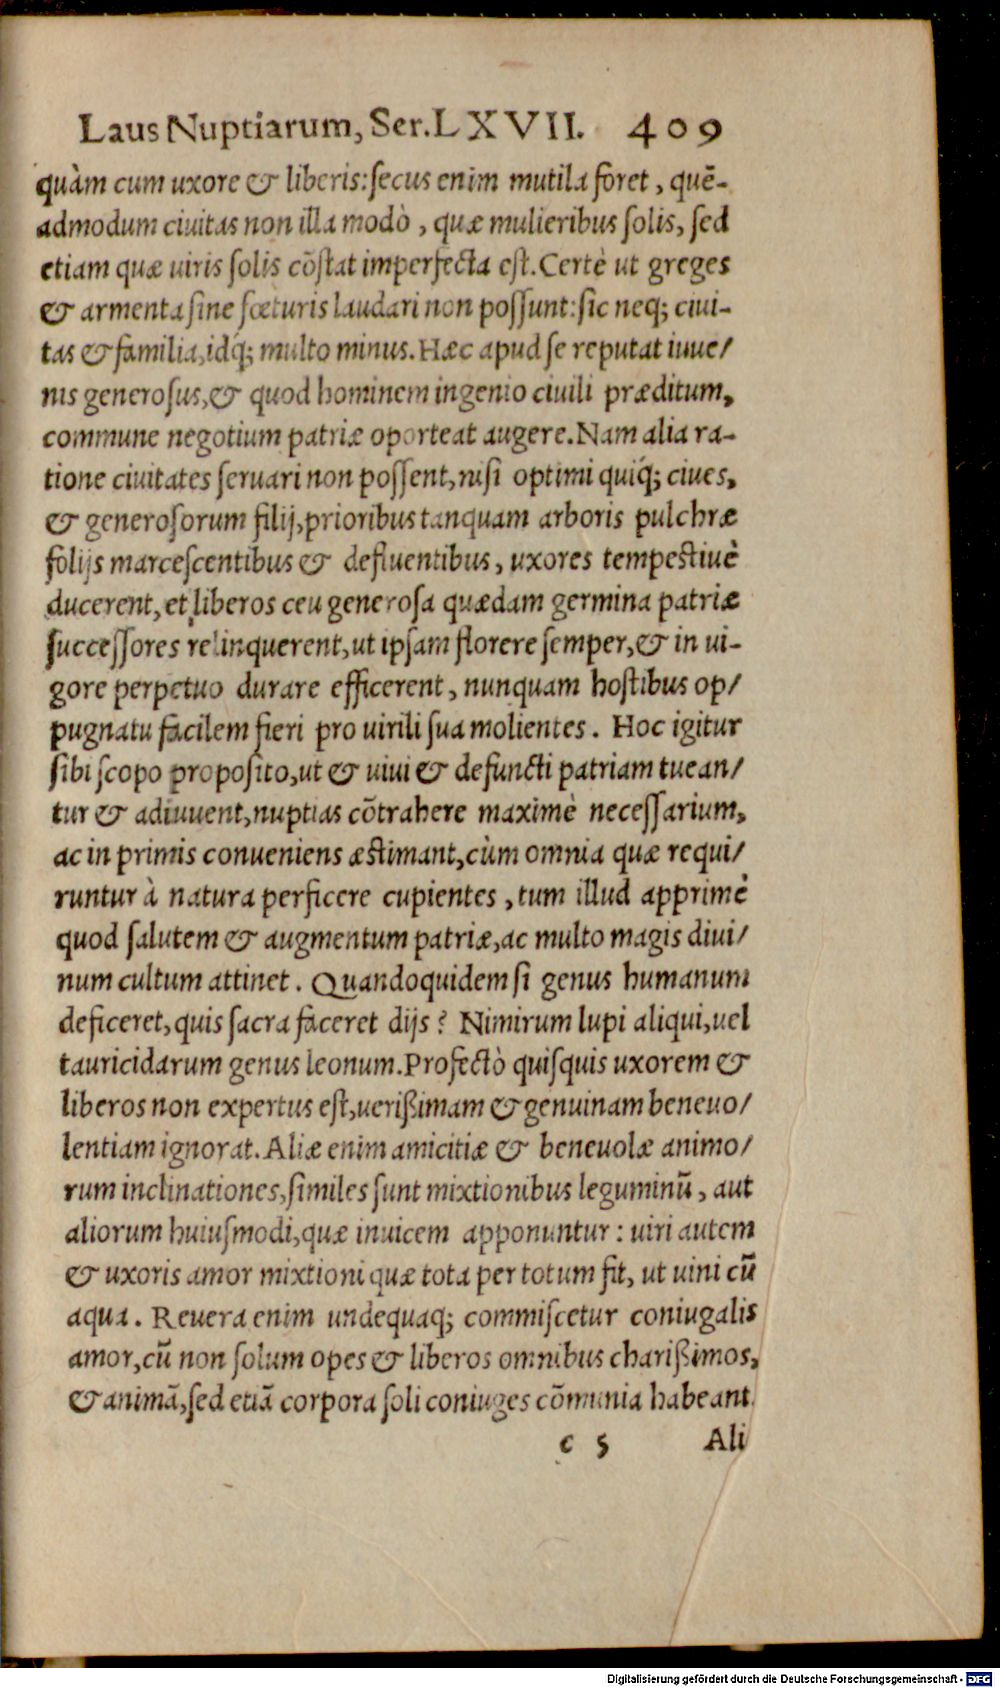 Laus Nuptiarum, Ser. LXVII. 409
quàm cum uxore & liberis: ſecus enim mutila foret, quē-
admodum ciuitas non illa modò, quæ mulieribus ſolis, ſed
etiam quæ uiris ſolis cōſtat imperfecta eſt. Certè ut greges
& armenta ſine fœturis laudari non poſſunt: ſic neq; ciui-
tas & familia, idq́; multo minus. Hæc apud ſe reputat iuue/
nis generoſus, & quod hominem ingenio ciuili præditum,
commune negotium patriæ oporteat augere. Nam alia ra-
tione ciuitates ſeruari non poſſent, niſi optimi quiq́; ciues,
& generoſorum filij, prioribus tanquam arboris pulchræ
folijs marceſcentibus & defluentibus, uxores tempeſtiuè
ducerent, et liberos ceu generoſa quædam germina patriæ
ſucceſſores relinquerent, ut ipſam florere ſemper, & in ui-
gore perpetuo durare efficerent, nunquam hoſtibus op/
pugnatu facilem fieri pro uirili ſua molientes. Hoc igitur
ſibi ſcopo propoſito, ut & uiui & defuncti patriam tuean/
tur & adiuuent, nuptias cōtrahere maximè neceſſarium,
ac in primis conueniens æſtimant, cùm omnia quæ requi/
runtur à natura perficere cupientes, tum illud apprimè
quod ſalutem & augmentum patriæ, ac multo magis diui/
num cultum attinet. Quandoquidem ſi genus humanum
deficeret, quis ſacra faceret dijs? Nimirum lupi aliqui, uel
tauricidarum genus leonum. Profectò quiſquis uxorem &
liberos non expertus eſt, ueriſsimam & genuinam beneuo/
lentiam ignorat. Aliæ enim amicitiæ & beneuolæ animo/
rum inclinationes, ſimiles ſunt mixtionibus leguminū, aut
aliorum huiuſmodi, quæ inuicem apponuntur: uiri autem
& uxoris amor mixtioni quæ tota per totum fit, ut uini cū
aqua. Reuera enim undequaq; commiſcetur coniugalis
amor, cū non ſolum opes & liberos omnibus chariſsimos,
& animā, ſed etiā corpora ſoli coniuges cōmunia habeant.
c 5 Ali
Digitalisierung gefördert durch die Deutsche Forschungsgemeinschaft - DFG